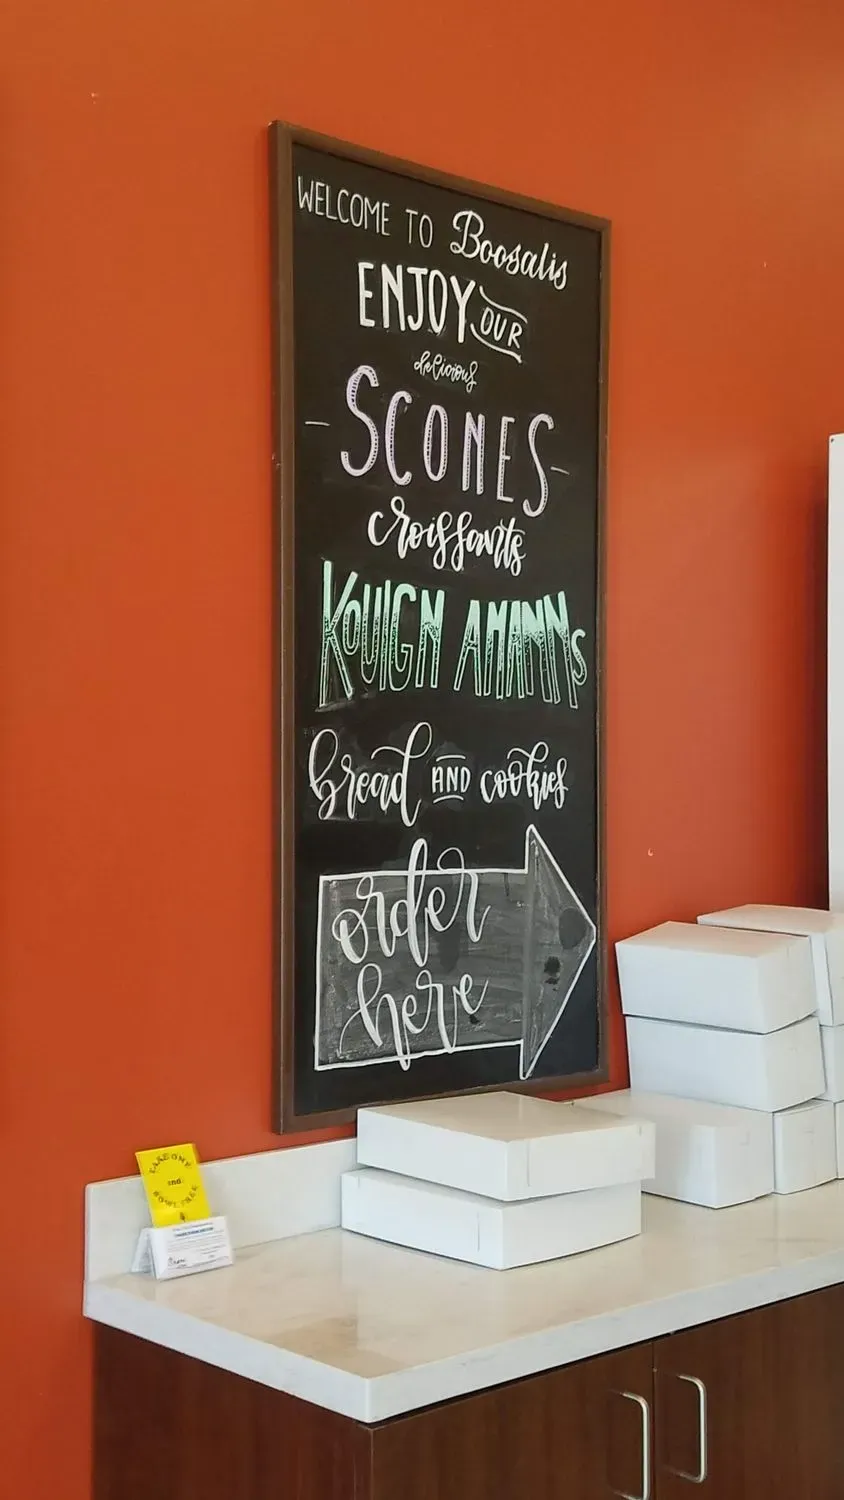 WELCOME TO Boosalis
ENJOY OUR
delicious
- SCONES -
croissants
KOUIGN AMANNs
bread AND cookies
order
here
TAKE ONE
and
BOWL FREE